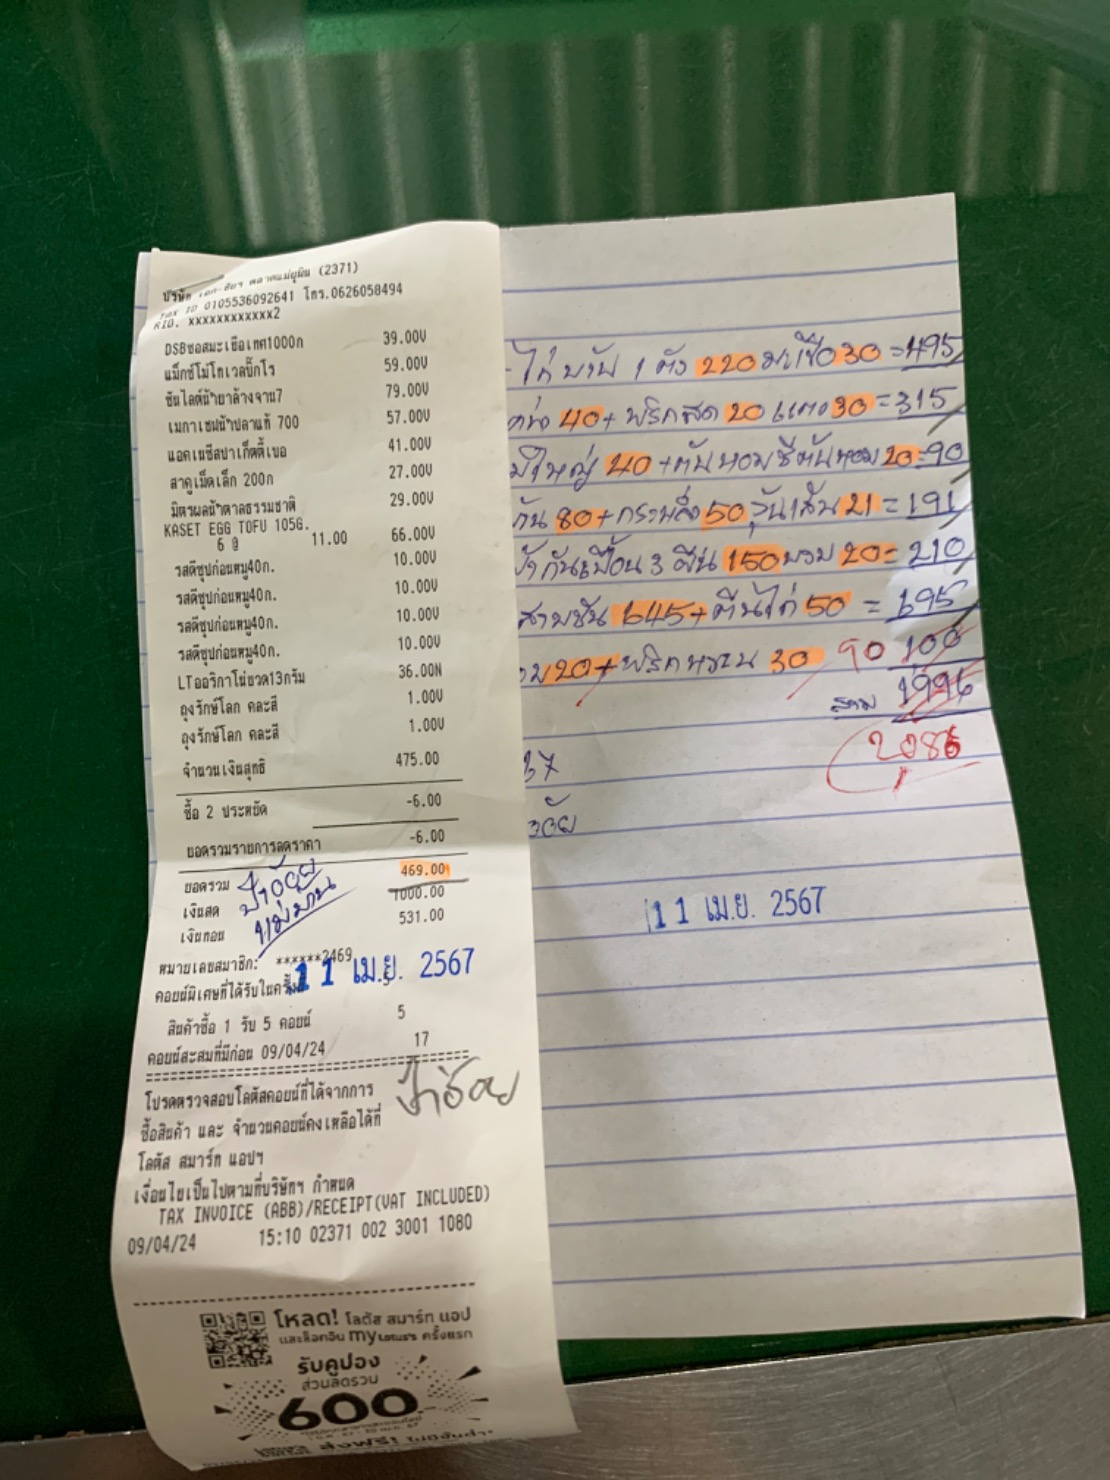 บริษัท เอก-ชัยฯ ตลาดแม่ยุพิน (2371)
TAX ID 0105536092641 โทร.0626058494
RID. xxxxxxxxxxxx2
DSBซอสมะเขือเทศ1000ก 39.00V
แม็กซ์โม่โกเวลบิ๊กโร 59.00V
ซันไลต์น้ำยาล้างจาน7 79.00V
เมกาเชฟน้ำปลาแท้ 700 57.00V
แอคเนซีสปาเก็ตตี้เบอ 41.00V
สาคูเม็ดเล็ก 200ก 27.00V
มิตรผลน้ำตาลธรรมชาติ 29.00V
KASET EGG TOFU 105G.
6 @ 11.00 66.00V
รสดีซุปก่อนหมู40ก. 10.00V
รสดีซุปก่อนหมู40ก. 10.00V
รสดีซุปก่อนหมู40ก. 10.00V
รสดีซุปก่อนหมู40ก. 10.00V
LTออริกาโน่ขวด13กรัม 36.00N
ถุงรักษ์โลก คละสี 1.00V
ถุงรักษ์โลก คละสี 1.00V
จำนวนเงินสุทธิ 475.00
ซื้อ 2 ประหยัด -6.00
ยอดรวมรายการลดราคา -6.00
ยอดรวม 469.00
เงินสด 1000.00
เงินทอน 531.00
ป้าอ้อย
แม่บ้าน
หมายเลขสมาชิก: ******2469
คอยน์พิเศษที่ได้รับในครั้งนี้ 5
11 เม.ย. 2567
สินค้าซื้อ 1 รับ 5 คอยน์ 5
คอยน์สะสมที่มีก่อน 09/04/24 17
โปรดตรวจสอบโลตัสคอยน์ที่ได้จากการ
ซื้อสินค้า และ จำนวนคอยน์คงเหลือได้ที่
โลตัส สมาร์ท แอปฯ
ป้าอ้อย
เงื่อนไขเป็นไปตามที่บริษัทฯ กำหนด
TAX INVOICE (ABB)/RECEIPT(VAT INCLUDED)
09/04/24 15:10 02371 002 3001 1080
โหลด! โลตัส สมาร์ท แอป
และล็อกอิน my Lotus's ครั้งแรก
รับคูปอง
ส่วนลดรวม
600
ส่งฟรี! ไม่มีขั้นต่ำ*
ไก่บ้าน 1 ตัว 220 มะเขือ 30 = 495
40 + พริกสด 20 แตง 30 = 315
ใหญ่ 40 + ต้นหอมชีต้นหอม 20 = 90
80 + กระหล่ำ 50 วุ้นเส้น 21 = 191
ผ้ากันเปื้อน 3 ผืน 150 บวบ 20 = 210
สามชั้น 645 + ตีนไก่ 50 = 695
20 + พริกหวาน 30 90 100
รวม 1996
2,086
67
อ้อย
11 เม.ย. 2567